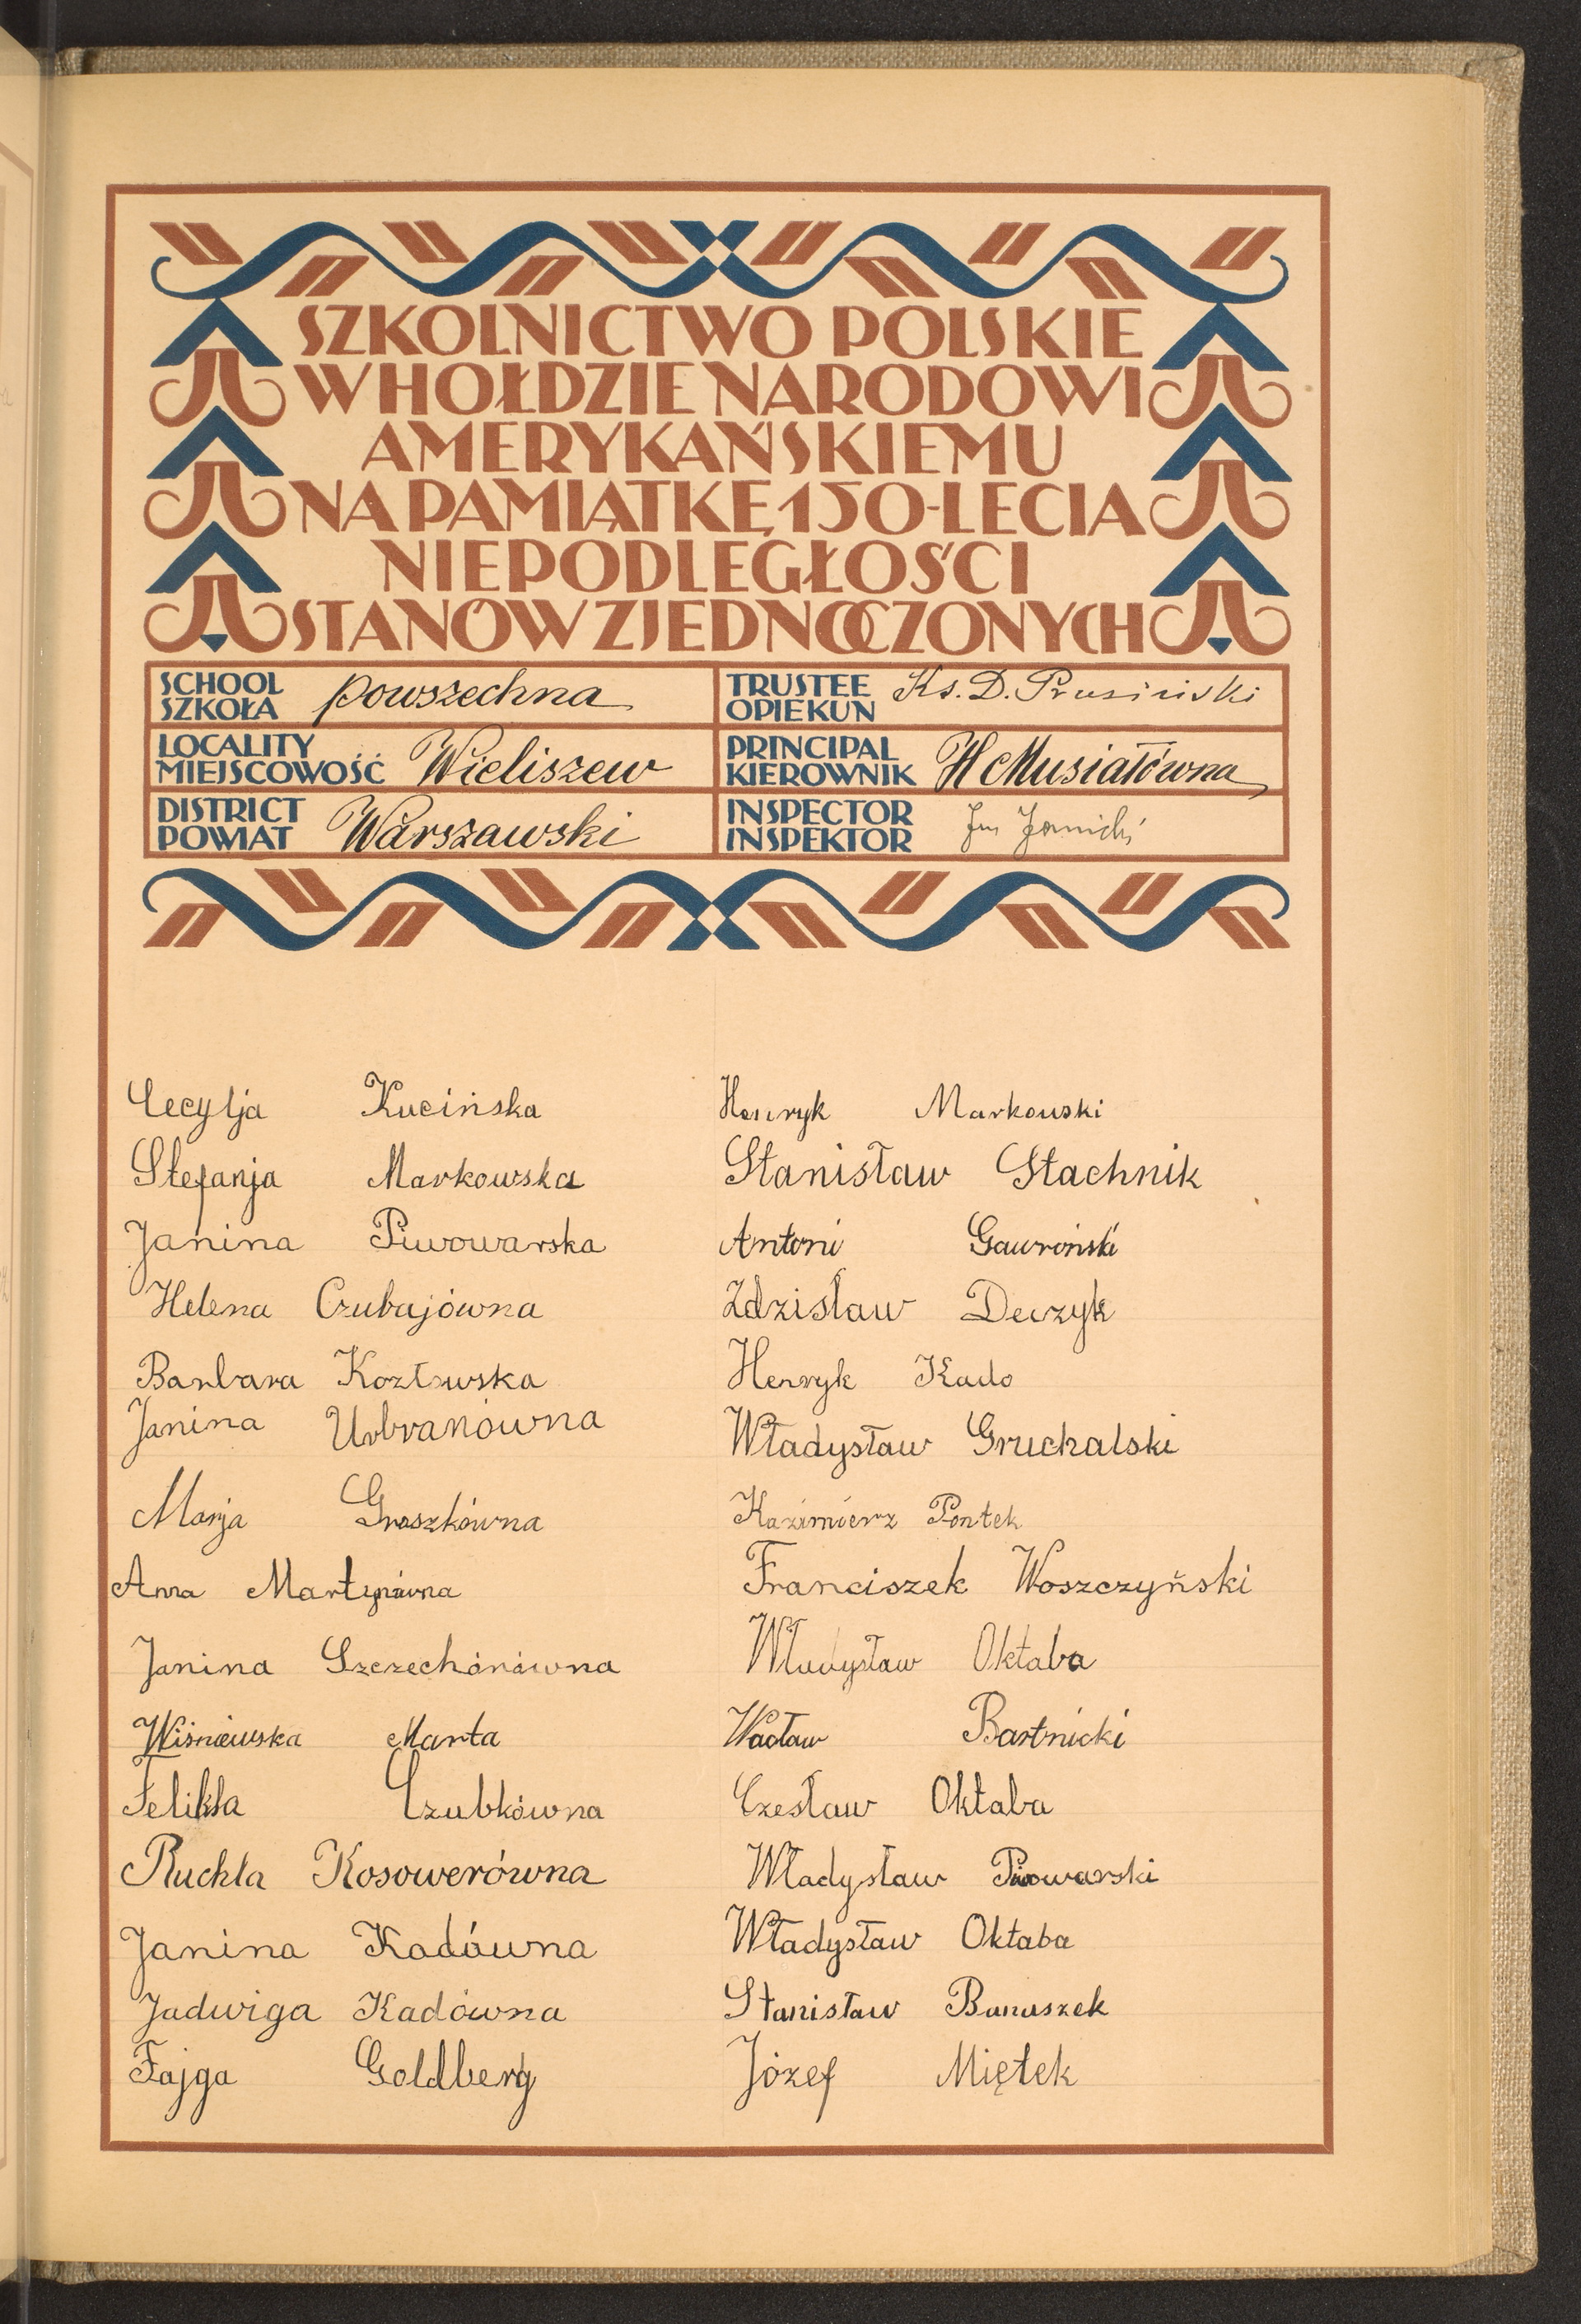 SZKOLNICTWO POLSKIE
W HOŁDZIE NARODOWI
AMERYKAŃSKIEMU
NA PAMIĄTKĘ 150-LECIA
NIEPODLEGŁOŚCI
STANÓW ZJEDNOCZONYCH
SCHOOL
SZKOŁA powszechna
TRUSTEE
OPIEKUN Ks. D. Prusiński
LOCALITY
MIEJSCOWOŚĆ Wieliszew
PRINCIPAL
KIEROWNIK H Musiałówna
DISTRICT
POWIAT Warszawski
INSPECTOR
INSPEKTOR
Cecylja Kucińska
Stefanja Markowska
Janina Piwowarska
Helena Czubajówna
Barbara Kozłowska
Janina Urbranówna
Marja Graszkówna
Anna Martynówna
Janina Szczechónówna
Wiśniewska Marta
Feliksa Czubkówna
Ruchla Kosowerówna
Janina Kadówna
Jadwiga Kadówna
Fajga Goldberg
Henryk Markowski
Stanisław Stachnik
Antoni Gawroński
Zdzisław Deczyk
Henryk Kado
Władysław Gruchalski
Kazimierz Pontek
Franciszek Woszczyński
Władysław Oktaba
Wacław Bartnicki
Czesław Oktaba
Władysław Piwowarski
Władysław Oktaba
Stanisław Banaszek
Józef Miętek